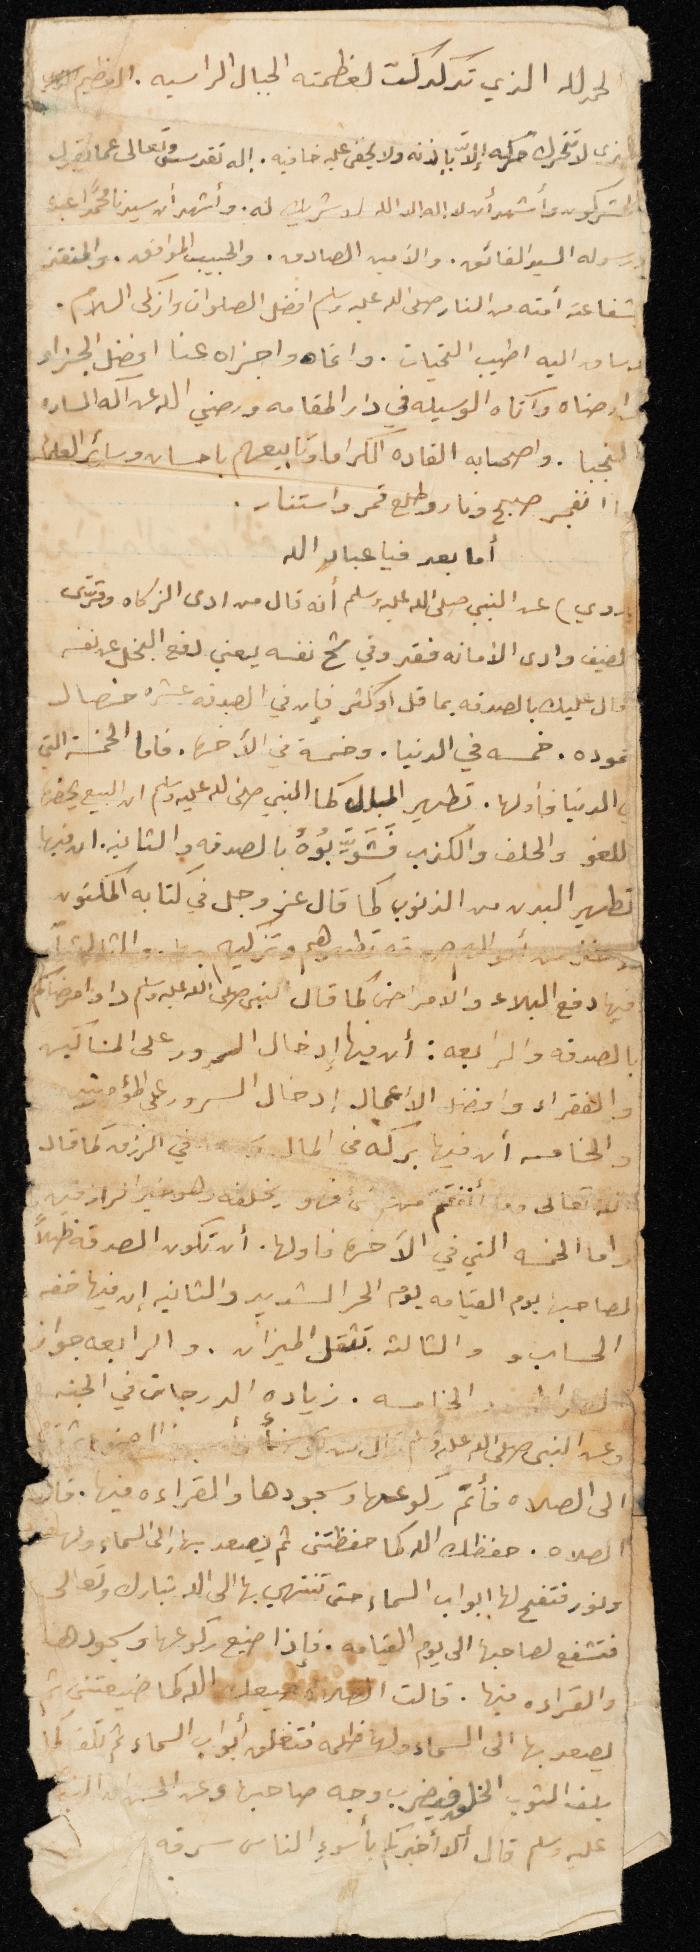 الحمد لله الذي تدكدكت لعظمته الجبال الراسيه . العظيم
الذي لا تتحرك حركه إلا بإذنه ولا يخفى عليه خافيه . إله تقدس وتعالى عما يقول
المشركون وأشهد أن لا إله الا الله لا شريك له . وأشهد أن سيدنا محمدًا عبده
ورسوله السيد الفائق . والامين الصادق . والحبيب الموافق . والمنقذ
بشفاعته أمته من النار صلى الله عليه وسلم افضل الصلوات وازكى السلام .
وساق اليه اطيب التحيات . وانماه واجزاه عنا افضل الجزاء
وارضاه وآتاه الوسيله في دار المقامه ورضي الله عن آله الساده
النجبا . واصحابه القاده الكراما وتابيعهم باحسان وسائر العلما
ما انفجر صبح ونار وطلع قمر واستنار .
أما بعد فيا عباد الله
روي) عن النبي صلى الله عليه وسلم أنه قال من ادى الزكاه وقرى
الضيف وادى الأمانه فقد وقي شح نفسه يعني دفع البخل عن نفسه
قال عليك بالصدقه بما قل او كثر فإن في الصدقه عشره خصال
محموده . خمسه في الدنيا . وخمسة في الآخره . فاما الخمسة التي
في الدنيا فأولها . تطهير المال كما النبي صلى الله عليه وسلم ان البيع يحضره
اللغو والحلف والكذب فشوبوه بالصدقه والثانيه . ان فيها
تطهير البدن من الذنوب كما قال عز وجل في كتابه المكنون
خذ من أموالهم صدقه تطهرهم وتزكيهم بها . والثالثة أن
فيها دفع البلاء والامراض كما قال النبي صلى الله عليه وسلم داوا مرضاكم
بالصدقه والرابعه : أن فيها إدخال السرور على المساكين
والفقراء وافضل الاعمال إدخال السرور على المؤمنين
والخامسه أن فيها بركه في المال في الرزق كما قال
الله تعالى وما أنفقتم من شئ فهو يخلفه وهو خير الرازقين
واما الخمسه التي في الآخره فاولها . أن تكون الصدقة ظلاً
لصاحبها يوم القيامه يوم الحر الشديد والثانيه إن فيها خفه
الحساب والثالثه تثقل الميزان . والرابعه جواز
الصراط والخامسه . زياده الدرجات في الجنه
وعن النبي صلى الله عليه وسلم قال من توضأ
الى الصلاه فأتم ركوعها وسجودها والقراءه فيها . قالت
الصلاه . حفظك الله كما حفظتني ثم يصعد بها إلى السماء ولها
ونور فتفتح لها ابواب السماء حتى تنتهي بها الى الله تبارك وتعالى
فتشفع لصاحبها الى يوم القيامه . فإذا ضيع ركوعها وسجودها
والقراءه فيها . قالت الصلاه ضيعك الله كما ضيعتني ثم
يصعد بها الى السماء ولها ظلمه فتغلق أبواب السماء ثم تلف كما
يلف الثوب الخلق فيضرب وجه صاحبها وعن الحسن ان النبي
عليه وسلم قال ألا أخبركم بأسوء الناس سرقه